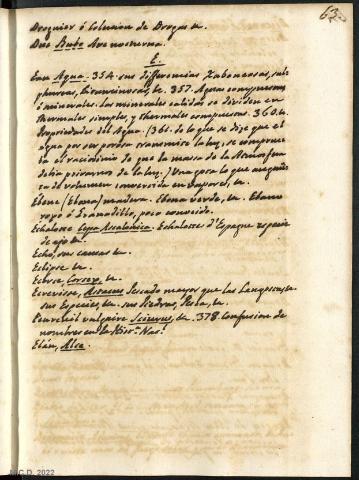 63
Droguier ó Colusion de Drogas &c.
Duc Bubo Ave nocturna.
E.
Eau Aqua. 354. sus differencias Xabonosas, sul-
phureas, &c. 357. Aguas compuestas
ó minerales. Las minerales calidas se dividen en
thermales simples, y thermales compuestas. 360. &c.
Propriedades del Agua. 361. de lo que se dize que el
agua por ser porosa transmite la luz, se compruev-
ta el raciocinio de que la massa de la Atmosfera
debia privarnos de la luz. Una gota lo que augmen-
ta de volumen convertida en vapores, &c.
Ébene (Ebano) madera. Ebena verde, &c. Ebano
roxo ó Granadillo, poco conocido.
Echalotte Cepa Ascalonica. Echalotte d'Espagne especie
de ajo &c.
Echo, sus causas &c.
Eclipse &c.
Ecorce, Corteza, &c.
Ecrevisse, Astacus Pescado mayor que las Langostas, &c.
sus Especies, &c. sus Piedras, Pesca, &c.
Ecureuil vulgaire Sciurus, &c. 378. Confusion de
nombres en la Hist.ª Nat.l
Elán, Alce.
M.C.D. 2022